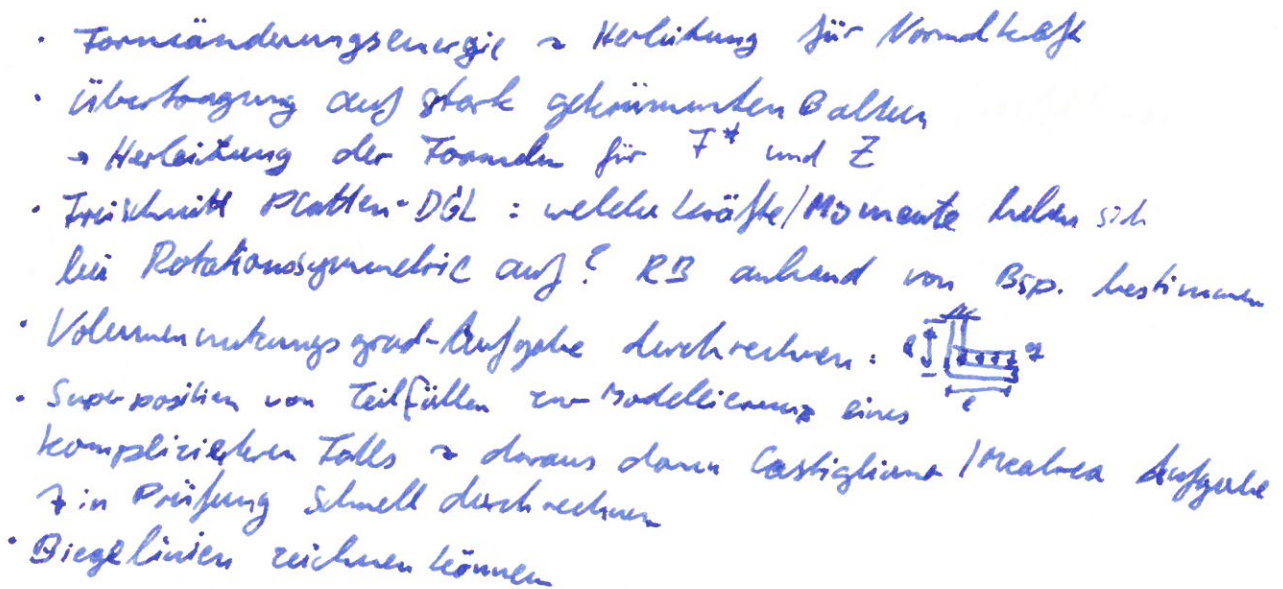 · Formänderungsenergie ~ Herleitung für Normalkraft
· Übertragung auf stark gekrümmten Balken
→ Herleitung der Formeln für F* und Z
· Freischnitt Platten-DGL : welche Kräfte/Momente heben sich
bei Rotationssymmetrie auf? RB anhand von Bsp. bestimmen
· Volumennutzungsgrad-Aufgabe durchrechnen: l q
l
· Superposition von Teilfällen zur Modellierung eines
komplizierteren Falls ~ daraus dann Castigliano / Menabrea Aufgabe
in Prüfung schnell durchrechnen
· Biegelinien zeichnen können